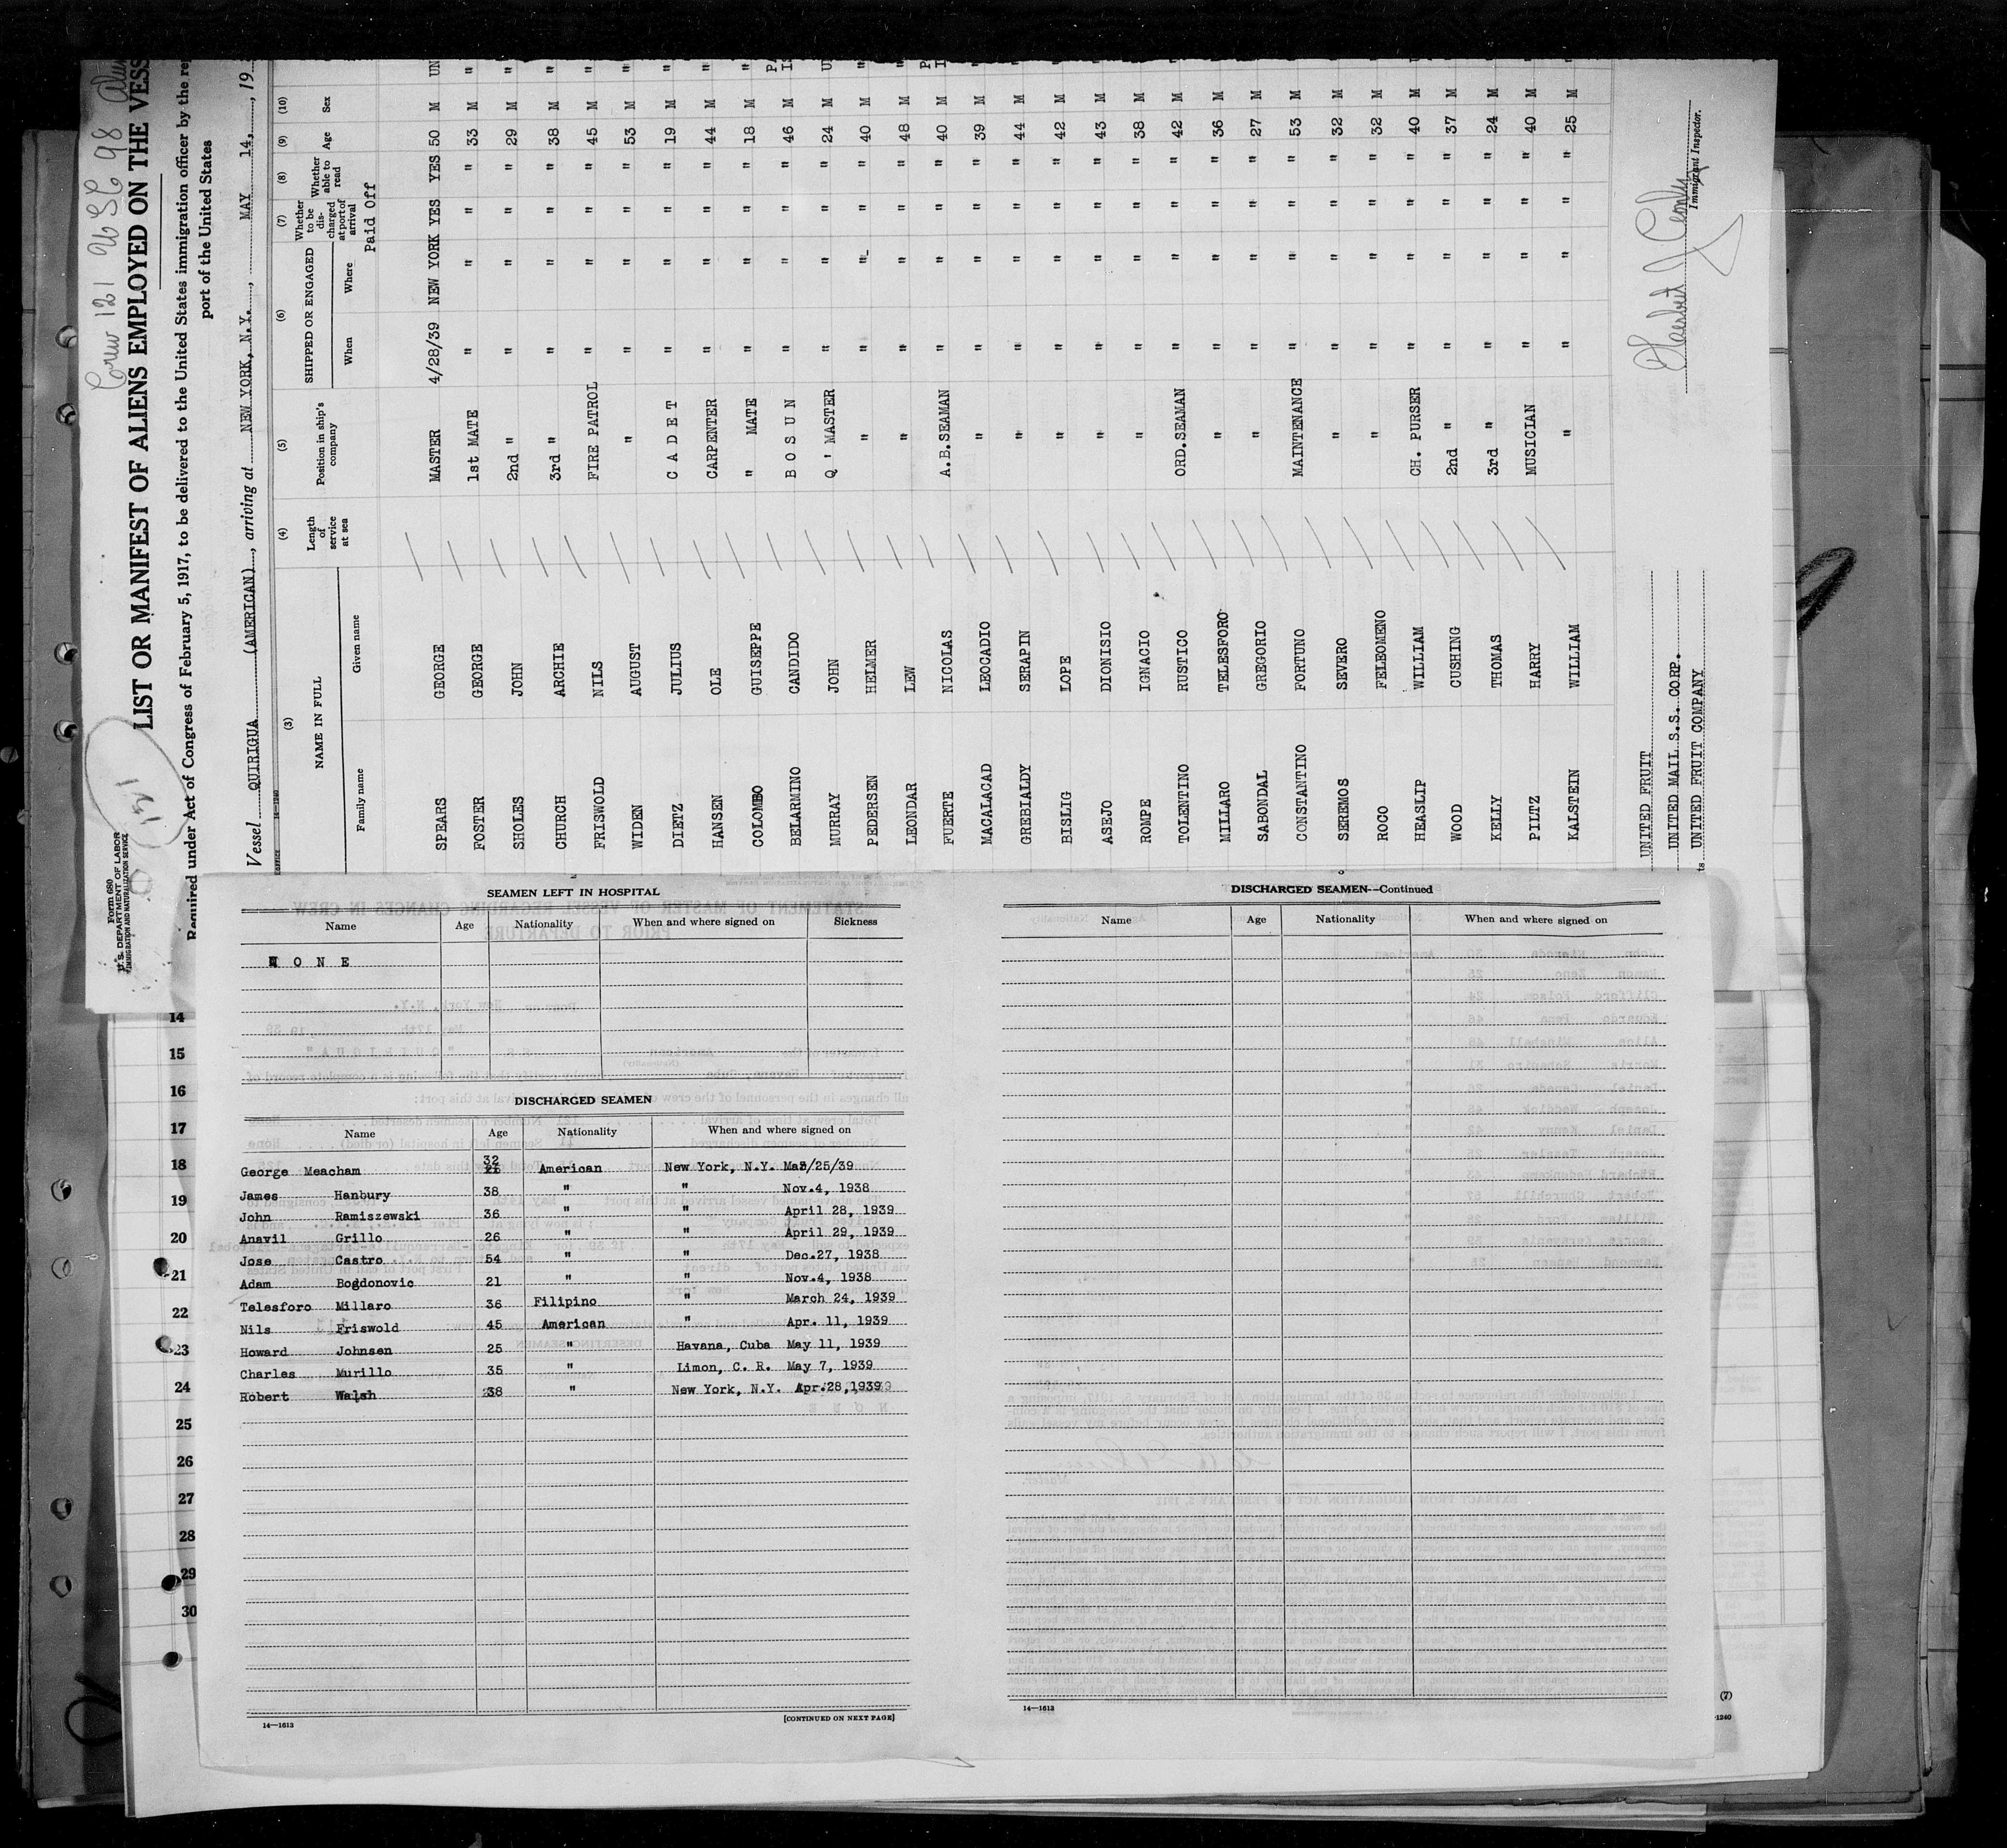 Crew 121 U SC 98
Form 680
U. S. DEPARTMENT OF LABOR
IMMIGRATION AND NATURALIZATION SERVICE
LIST OR MANIFEST OF ALIENS EMPLOYED ON THE VESS
Required under Act of Congress of February 5, 1917, to be delivered to the United States immigration officer by the re
port of the United States
Vessel QUIRIGUA (AMERICAN), arriving at NEW YORK, N.Y., MAY 14, 19
(3) (4) (5) (6) (7) (8) (9) (10)
NAME IN FULL Length of service at sea Position in ship's company SHIPPED OR ENGAGED Whether to be discharged at port of arrival Whether able to read Age Sex
Family name Given name When Where Paid Off
SPEARS GEORGE MASTER 4/28/39 NEW YORK YES YES 50 M UN
FOSTER GEORGE 1st MATE " " " " 33 M "
SHOLES JOHN 2nd " " " " " 29 M "
CHURCH ARCHIE 3rd " " " " " 38 M "
FRISWOLD NILS FIRE PATROL " " " " 45 M "
WIDEN AUGUST " " " " " 53 M "
DIETZ JULIUS C A D E T " " " " 19 M "
HANSEN OLE CARPENTER " " " " 44 M "
COLOMBO GUISEPPE " MATE " " " " 18 M "
BELARMINO CANDIDO B O S U N " " " " 46 M
MURRAY JOHN Q ' MASTER " " " " 24 M U
PEDERSEN HELMER " " " " " 40 M "
LEONDAR LEW " " " " " 48 M "
FUERTE NICOLAS A.B.SEAMAN " " " " 40 M
MACALACAD LEOCADIO " " " " " 39 M "
GREBIALDY SERAPIN " " " " " 44 M "
BISLIG LOPE " " " " " 42 M "
ASEJO DIONISIO " " " " " 43 M "
ROMPE IGNACIO " " " " " 38 M "
TOLENTINO RUSTICO ORD.SEAMAN " " " " 42 M "
MILLARO TELESFORO " " " " " 36 M "
SABONDAL GREGORIO " " " " " 27 M "
CONSTANTINO FORTUNO MAINTENANCE " " " " 53 M "
SEREMOS SEVERO " " " " " 32 M "
ROCO FELEOMENO " " " " " 32 M "
HEASLIP WILLIAM CH. PURSER " " " " 40 M
WOOD CUSHING 2nd " " " " " 37 M "
KELLY THOMAS 3rd " " " " " 24 M "
PILTZ HARRY MUSICIAN " " " " 40 M "
KALSTEIN WILLIAM " " " " " 25 M "
UNITED FRUIT
UNITED MAIL S.S. CORP.
UNITED FRUIT COMPANY
Immigrant Inspector.
SEAMEN LEFT IN HOSPITAL
Name Age Nationality When and where signed on Sickness
N O N E
DISCHARGED SEAMEN
Name Age Nationality When and where signed on
George Meacham 32 American New York, N.Y. Mar/25/39
James Hanbury 38 " " Nov.4, 1938
John Ramiszewski 36 " " April 28, 1939
Anavil Grillo 26 " " April 29, 1939
Jose Castro 54 " " Dec.27, 1938
Adam Bogdonovic 21 " " Nov.4, 1938
Telesforo Millaro 36 Filipino " March 24, 1939
Nils Friswold 45 American " Apr. 11, 1939
Howard Johnsen 25 " Havana, Cuba May 11, 1939
Charles Murillo 35 " Limon, C. R. May 7, 1939
Robert Walsh 38 " New York, N.Y. Apr.28,1939
14—1613
[CONTINUED ON NEXT PAGE]
DISCHARGED SEAMEN—Continued
Name Age Nationality When and where signed on
14—1613
14
15
16
17
18
19
20
21
22
23
24
25
26
27
28
29
30
(7)
1240